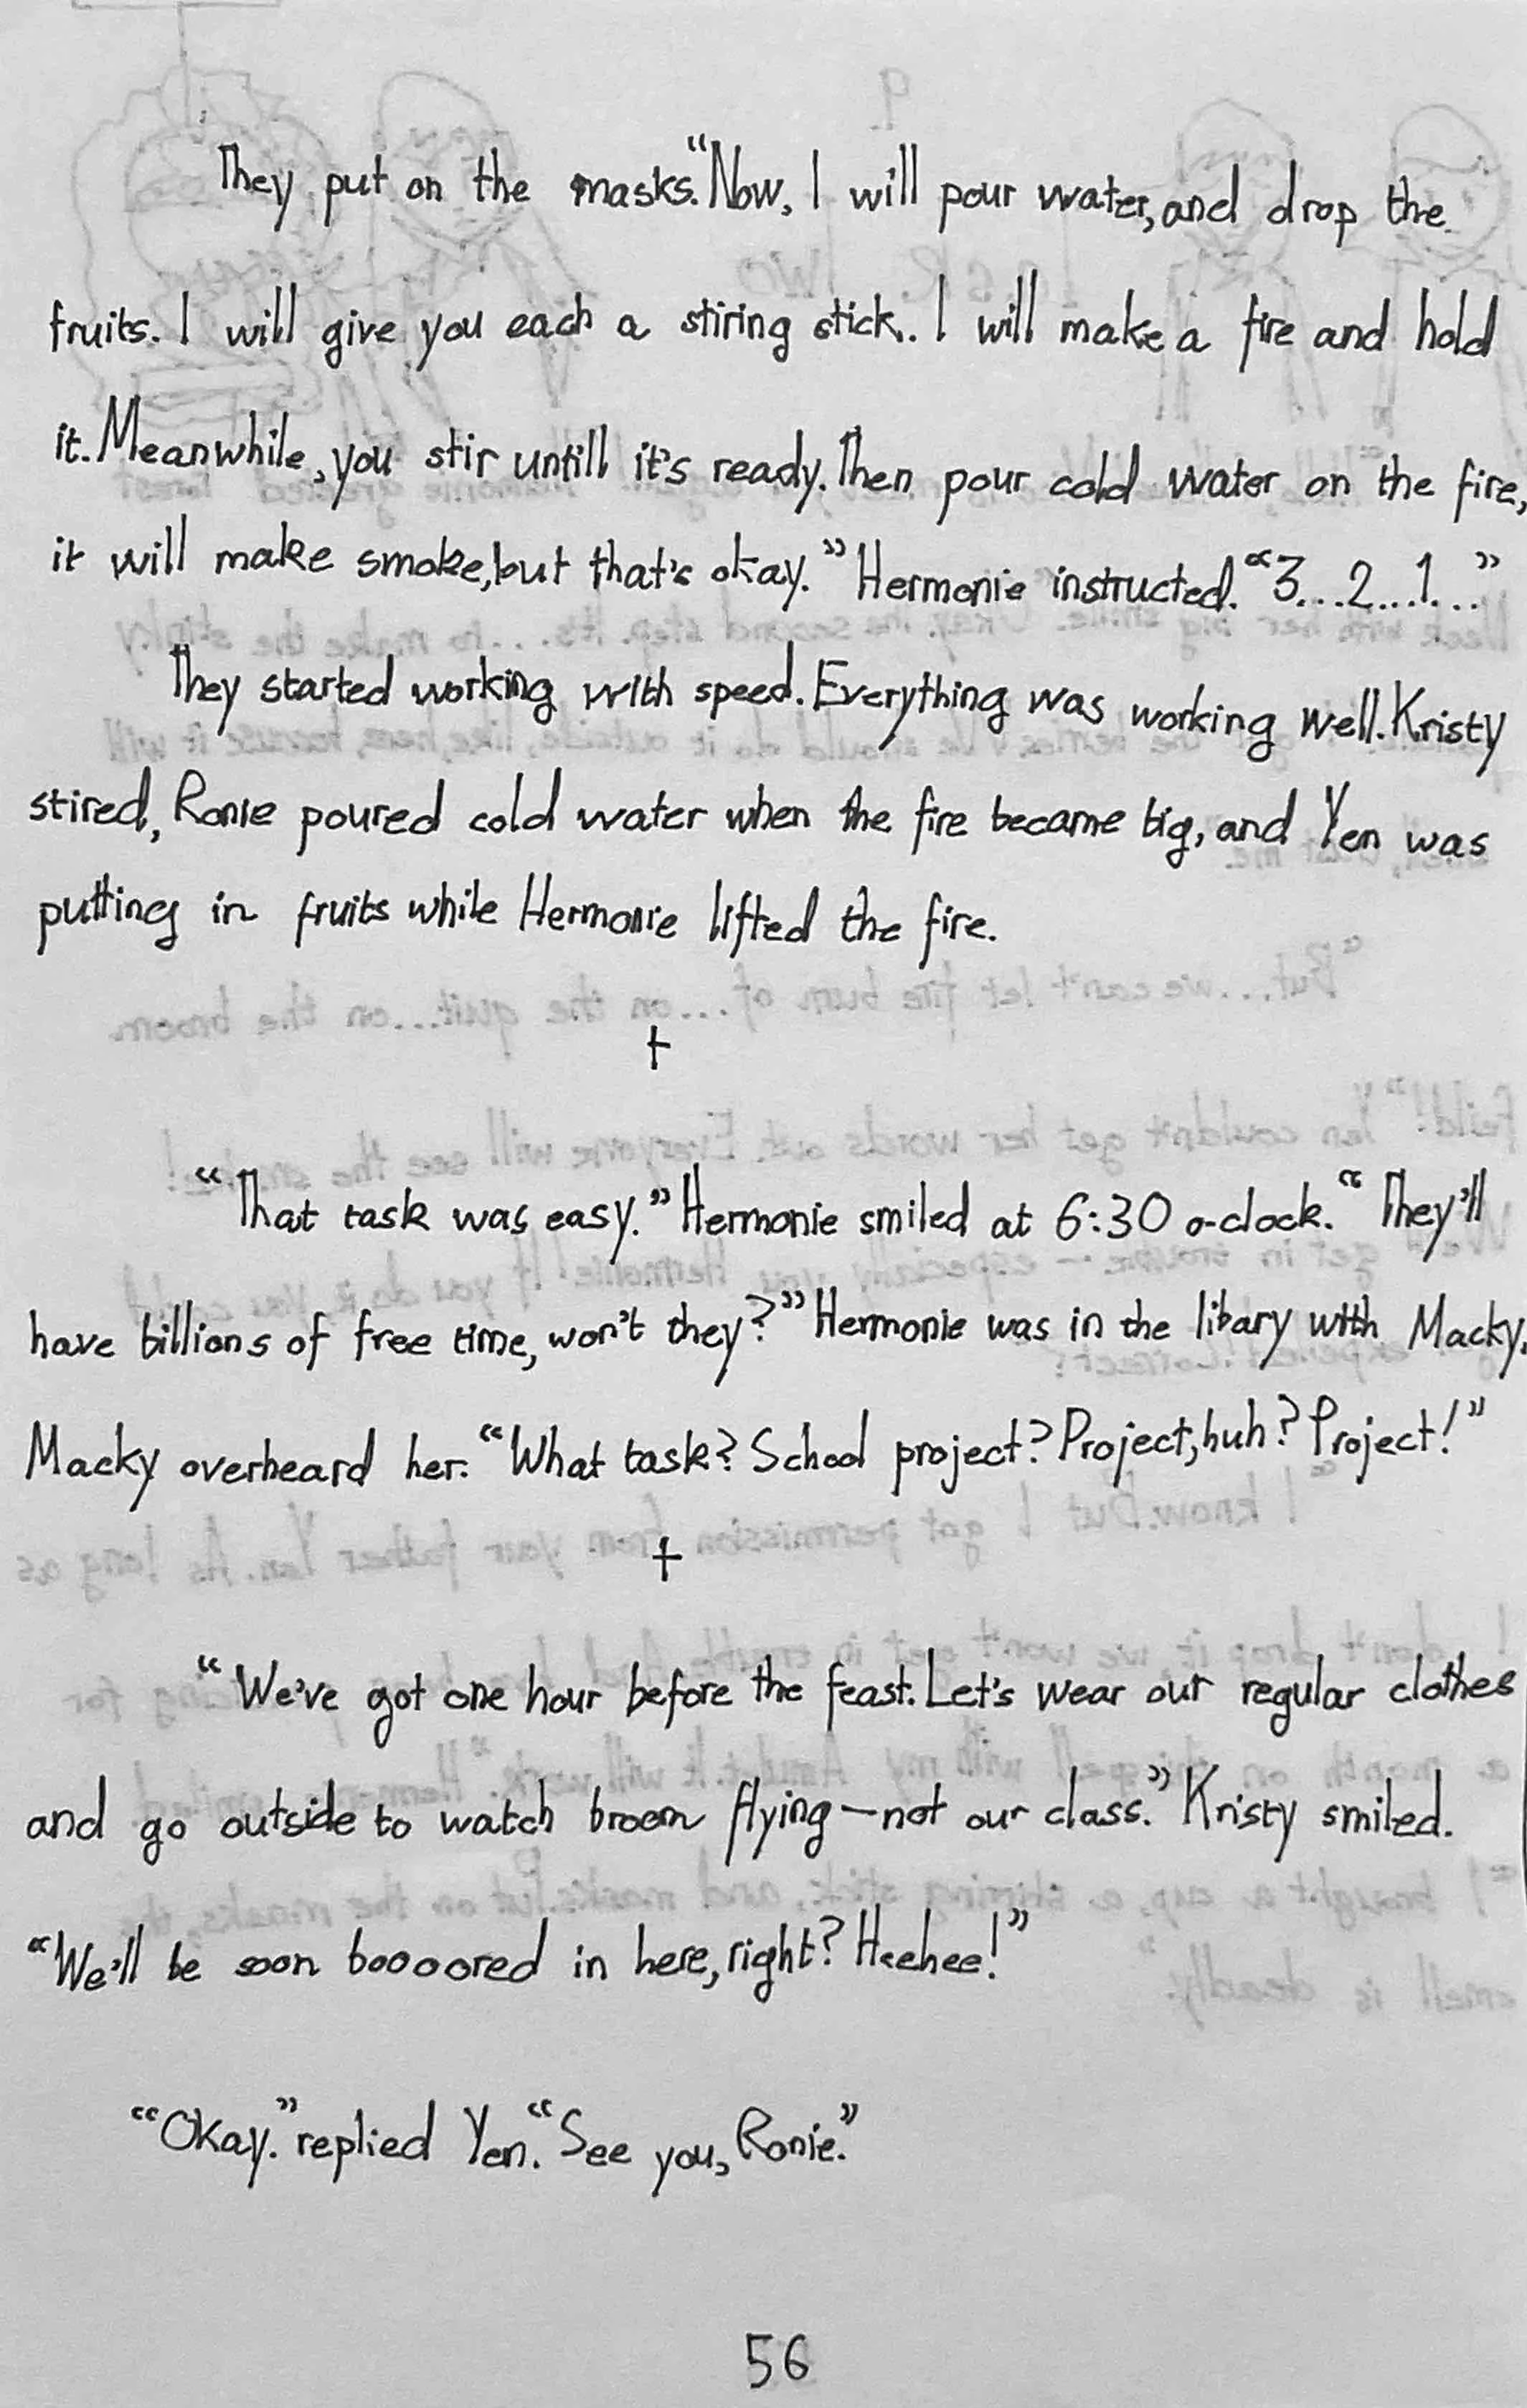 They put on the masks. "Now, I will pour water, and drop the
fruits. I will give you each a stiring stick. I will make a fire and hold
it. Meanwhile, you stir untill it's ready. Then pour cold water on the fire,
it will make smoke, but that's okay." Hermonie instructed. "3...2...1..."
They started working with speed. Everything was working well. Kristy
stired, Ronie poured cold water when the fire became big, and Yen was
putting in fruits while Hermonie lifted the fire.
+
"That task was easy." Hermonie smiled at 6:30 o-clock. "They'll
have billions of free time, won't they?" Hermonie was in the libary with Macky.
Macky overheard her. "What task? School project? Project, huh? Project!"
+
"We've got one hour before the feast. Let's wear our regular clothes
and go outside to watch broom flying—not our class." Kristy smiled.
"We'll be soon boooored in here, right? Heehee!"
"Okay." replied Yen. "See you, Ronie."
56